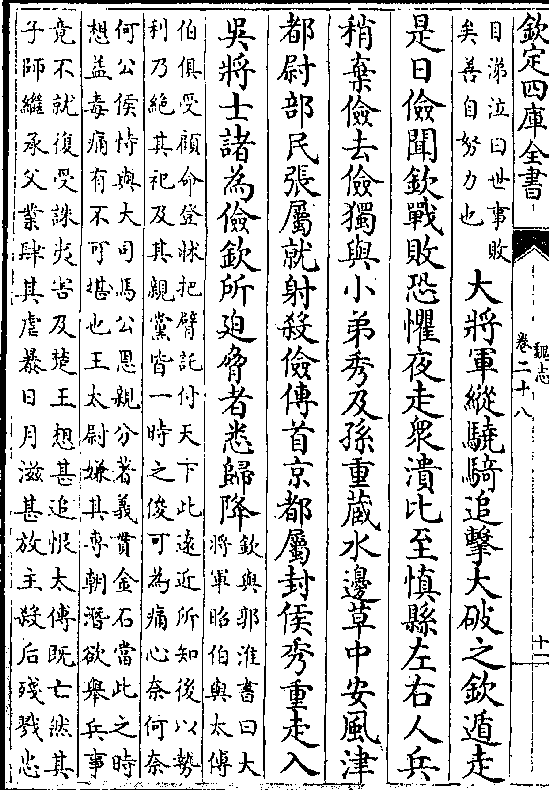 欽定四庫全書
魏志
卷二十八
十一
目涕泣曰世事敗
矣善自努力也
大將軍縱驍騎追擊大破之欽遁走
是日儉聞欽戰敗恐懼夜走衆潰比至慎縣左右人兵
稍棄儉去儉獨與小弟秀及孫重藏水邊草中安風津
都尉部民張屬就射殺儉傳首京都屬封侯秀重走入
吳將士諸為儉欽所廹脅者悉歸降
欽與郭淮書曰大
將軍昭伯與太傅
伯俱受顧命登牀把臂託付天下此遠近所知後以勢
利乃絕其祀及其親黨皆一時之俊可為痛心奈何奈
何公侯恃與大司馬公恩親分著義貫金石當此之時
想益毒痛有不可堪也王太尉嫌其專朝潛欲舉兵事
竟不就復受誅夷害及楚王想甚追恨太傅既亡然其
子師繼承父業肆其虐暴日月滋甚放主殺后殘戮忠